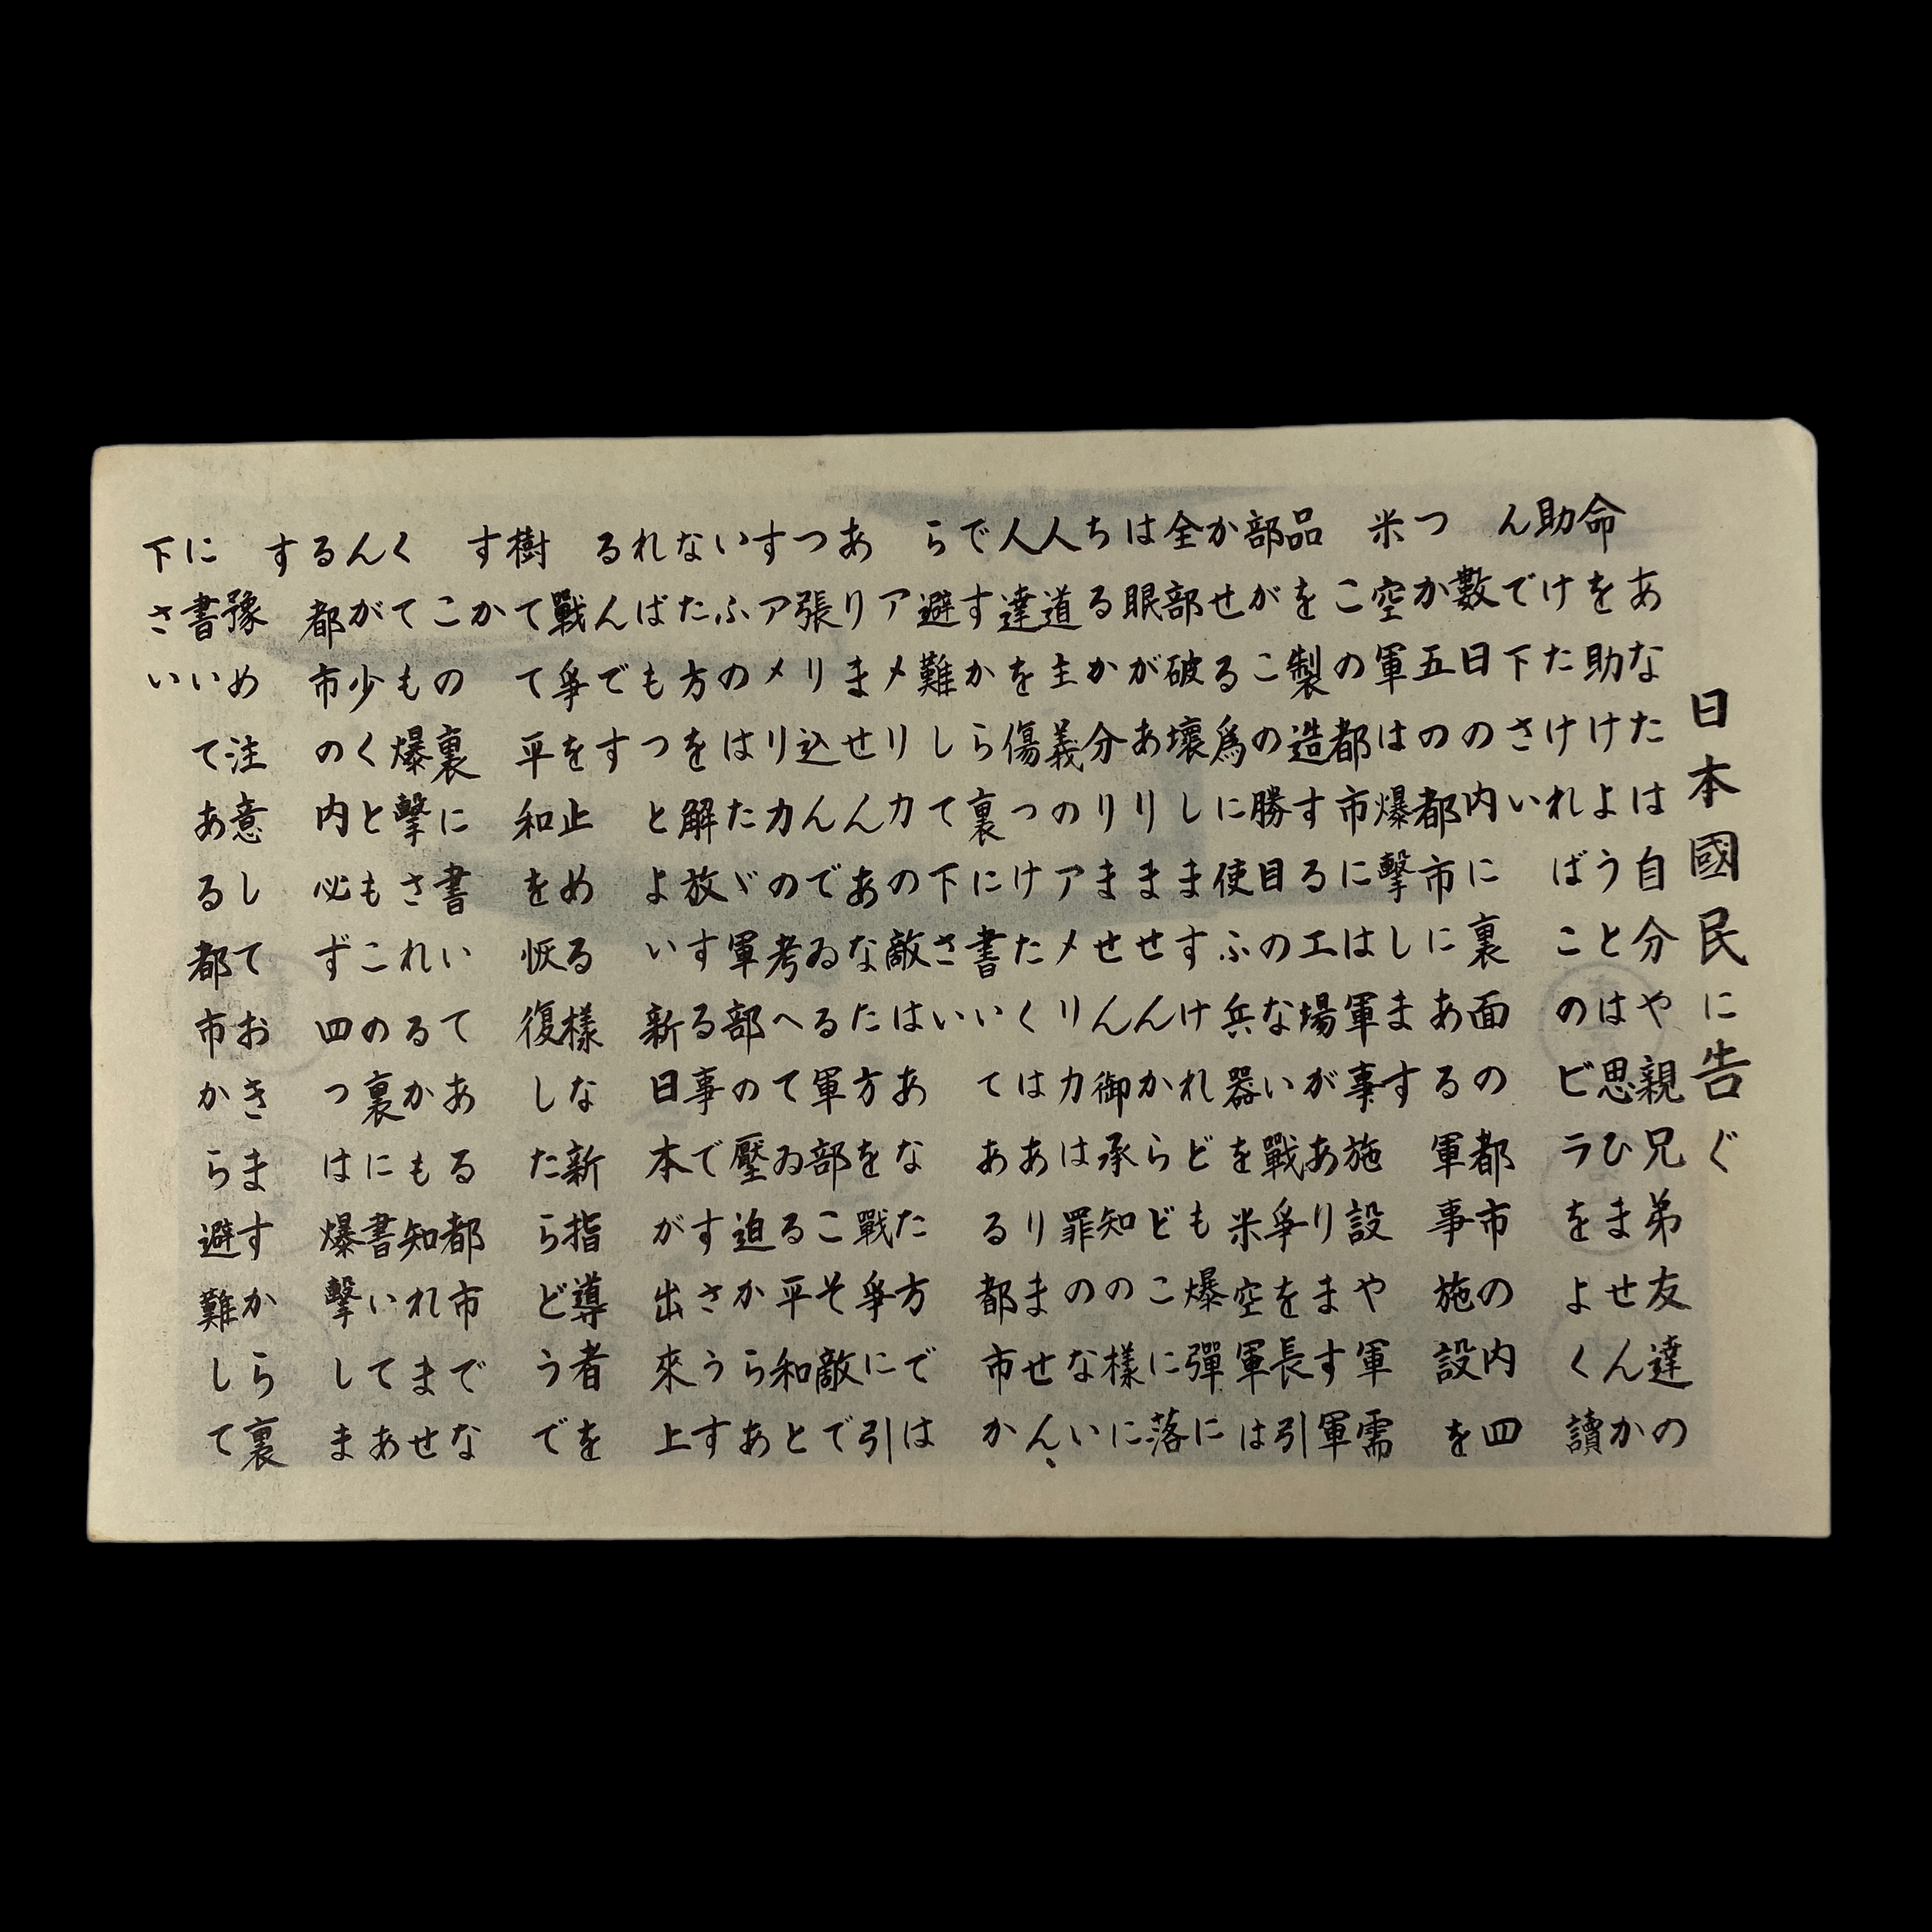 日本國民に告ぐ
あなたは自分や親兄弟友達の
命を助けようとは思ひませんか
助けたければこのビラをよく讀
んで下さい
數日の内に裏面の都市の内四
つか五の都市にある軍事施設を
米空軍は爆撃します
この都市には軍事施設や軍需
品を製造する工場があります軍
部はこの勝目のない戰爭を長引
かせる爲に使ふ兵器を米空軍は
全部破壞しますけれども爆彈に
は眼がありませんからどこに落
ちるか分りません御承知の樣に
人道主義のアメリカは罪のない
人達を傷つけたくはありません
ですから裏に書いてある都市か
ら避難して下さい
アメリカの敵はあなた方では
ありませんあなた方を戰爭に引
つ張り込んでゐる軍部こそ敵で
すアメリカの考へてゐる平和と
いふのはたゞ軍部の壓迫からあ
なた方を解放する事ですさうす
ればもつとよい新日本が出來上
るんです
戰爭を止める樣な新指導者を
樹てて平和を恢復したらどうで
すか
この裏に書いてある都市でな
くても爆撃されるかも知れませ
んが少くともこの裏に書いてあ
る都市の内必ず四つは爆撃しま
す
豫め注意しておきますから裏
に書いてある都市から避難して
下さい